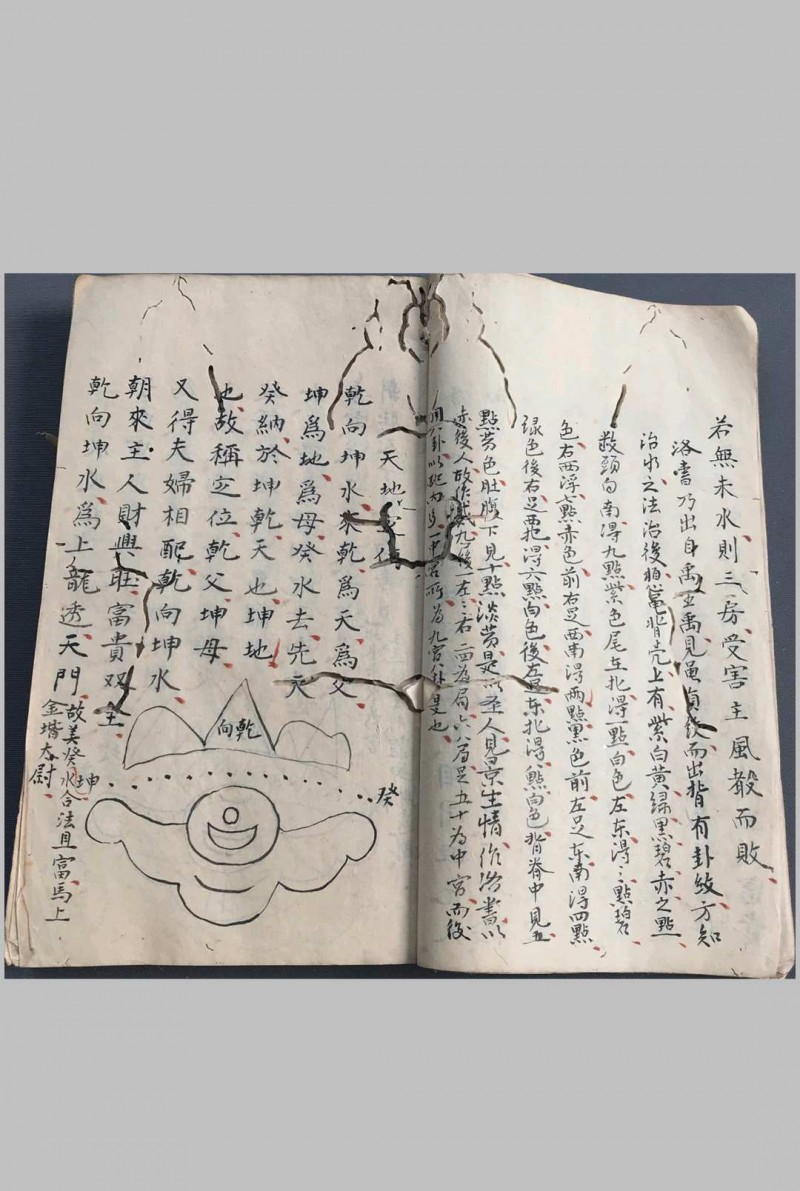 若無未水則三房受害主風殺而敗
洛書乃出自禹王禹見龜負從而出背有卦紋方知
治水之法治後觀背壳上有紫白黃緑黑碧赤之點
数頭向南得九點紫色尾在北得一點白色左东得三點碧
色右西浮七點赤色前右足西南得两點黑色前左足东南得四點
緑色後右足西北得六點白色後左足东北得八點白色背脊中見五
點黄色肚腹下見十點淡黄是以圣人見景生情作洛書以
後人故作戴九後一左三右七二四為肩六八為足五十為中宮而後
用八卦以配一中宮所為九宮八卦是也
天地定位
乾向坤水來乾爲天爲父
坤爲地爲母癸水去先天
癸納於坤乾天也坤地
也故稱定位乾父坤母
又得夫婦相配乾向坤水
朝來主人財興旺富貴双全
乾向坤水爲上龍透天門
故美癸水合法且富馬上
金堦太尉
乾向
坤
癸